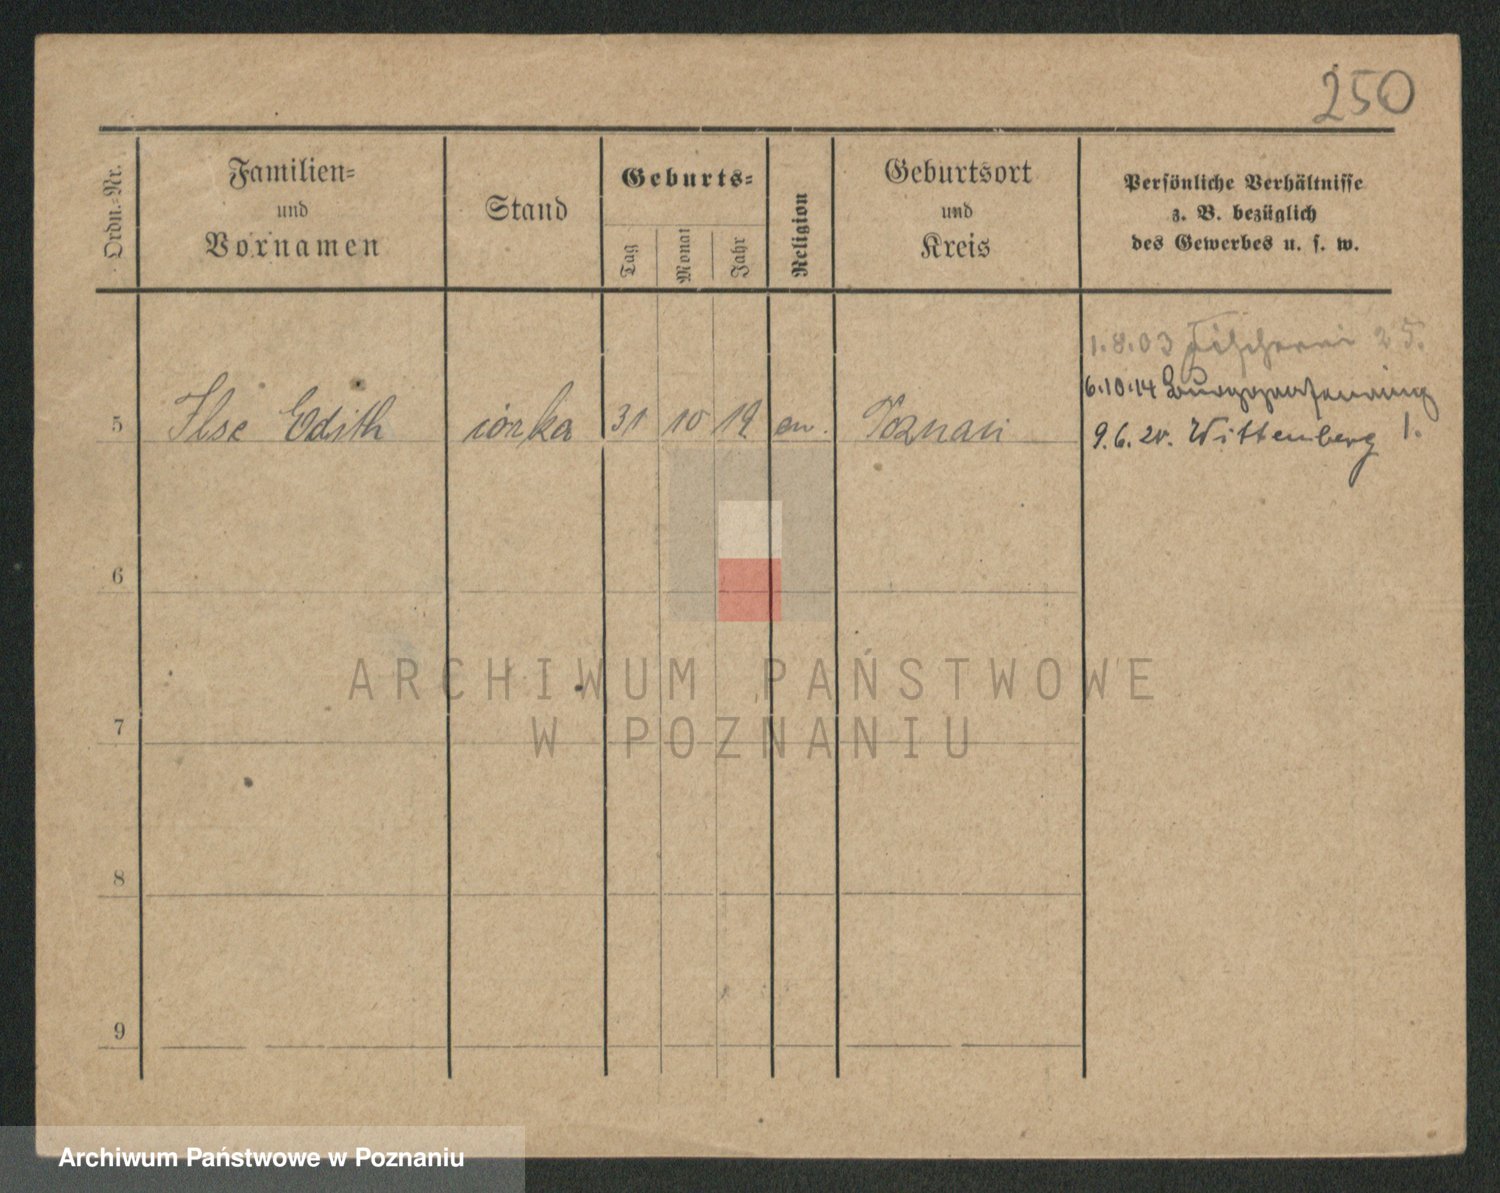 250
Ordn.-Nr.
Familien-
und
Vornamen
Stand
Geburts-
Tag
Monat
Jahr
Religion
Geburtsort
und
Kreis
Persönliche Verhältnisse
z. B. bezüglich
des Gewerbes u. s. w.
1.8.03 Fischerei 25.
6.10.14
5 Ilse Edith córka 31 10 19 ew. Poznań
9.6.20. Wittenberg 1.
6
7
8
9
ARCHIWUM PAŃSTWOWE
W POZNANIU
Archiwum Państwowe w Poznaniu